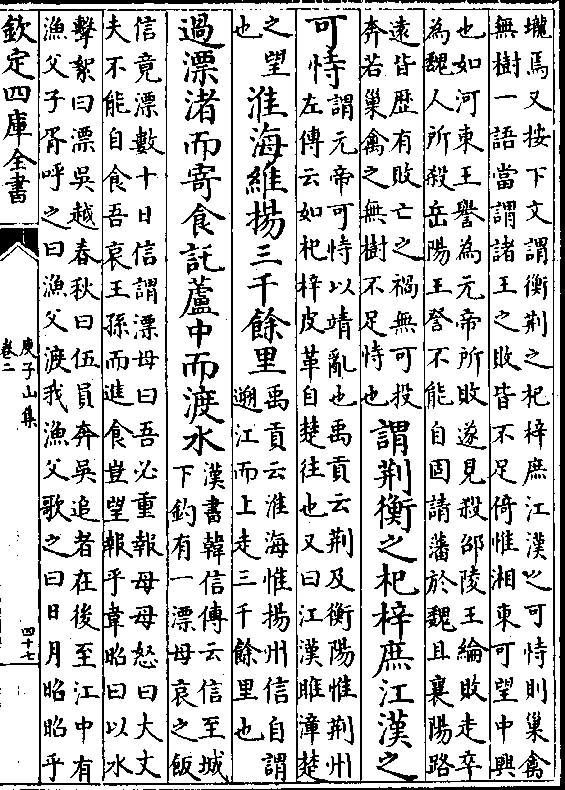 壠焉又按下文謂衡荆之杞梓庶江漢之可恃則巢禽
無樹一語當謂諸王之敗皆不足倚惟湘東可望中興
也如河東王譽為元帝所敗遂見殺邵陵王綸敗走卒
為魏人所殺岳陽王詧不能自固請藩於魏且襄陽路
遠皆歴有敗亡之禍無可投
奔若巢禽之無樹不足恃也
謂荆衡之杞梓庶江漢之
可恃
謂元帝可恃以靖亂也禹貢云荆及衡陽惟荆州
左傳云如杞梓皮革自楚往也又曰江漢睢漳楚
之望
也
淮海維揚三千餘里
禹貢云淮海惟揚州信自謂
遡江而上走三千餘里也
過漂渚而寄食託蘆中而渡水
漢書韓信傳云信至城
下釣有一漂母哀之飯
信竟漂數十日信謂漂母曰吾必重報母母怒曰大丈
夫不能自食吾哀王孫而進食豈望報乎韋昭曰以水
擊絮曰漂吳越春秋曰伍員奔吳追者在後至江中有
漁父子胥呼之曰漁父渡我漁父歌之曰日月昭昭乎
欽定四庫全書
庾子山集
卷二
四十七